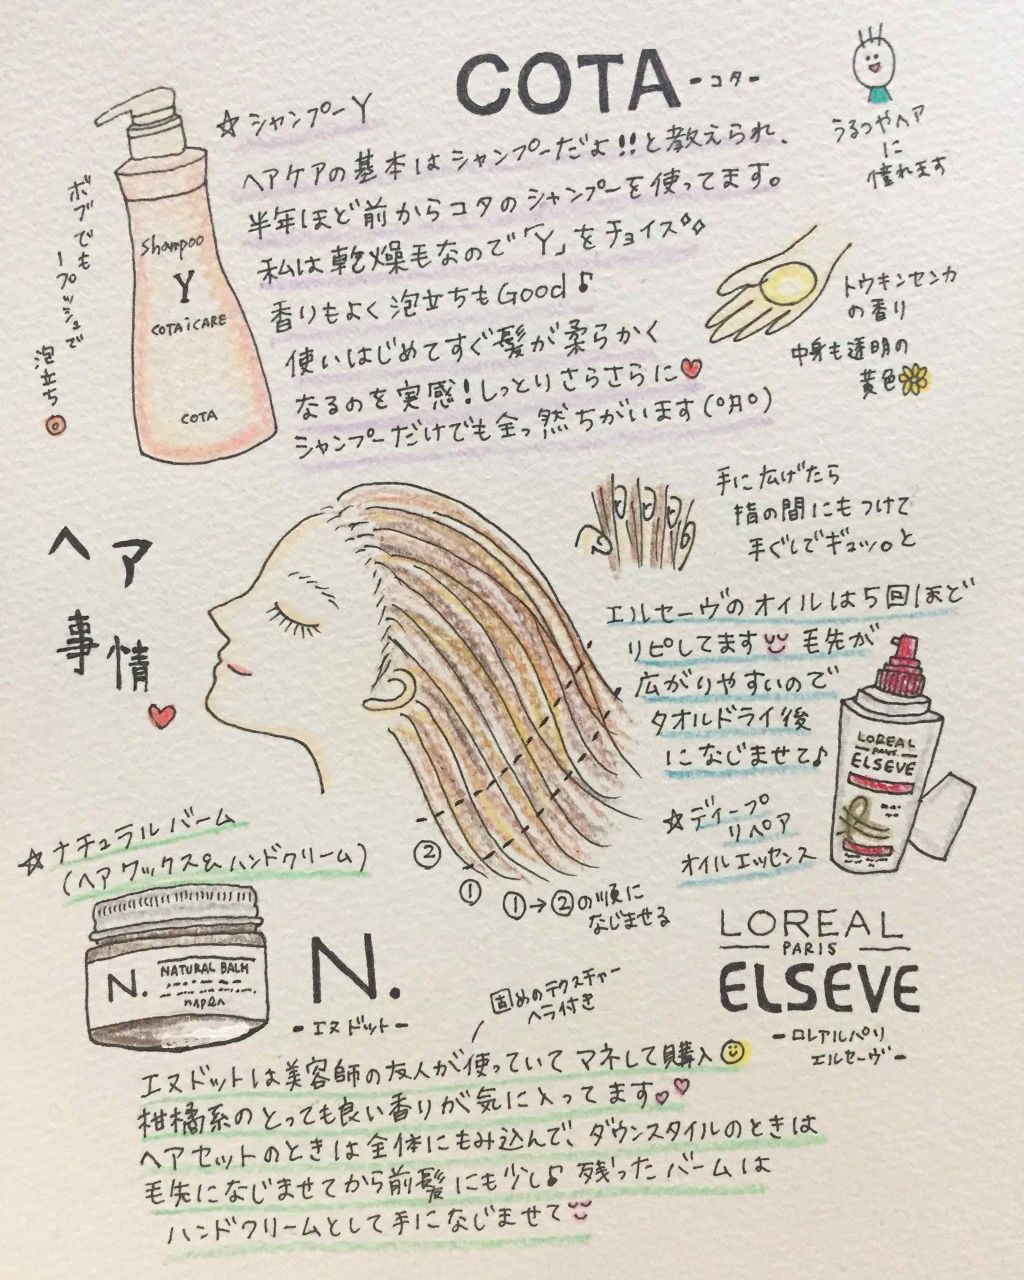 COTA
-コタ-
うるつやヘア
に
憧れます
☆シャンプーY
ヘアケアの基本はシャンプーだよ!!と教えられ、
半年ほど前からコタのシャンプーを使ってます。
私は乾燥毛なので「Y」をチョイス
香りもよく泡立ちもGood♪
使いはじめてすぐ髪が柔らかく
なるのを実感!しっとりさらさらに♥
シャンプーだけでも全っ然ちがいます(°Д°)
ボブでも
1プッシュで
泡立ち◎
Shampoo
Y
COTAiCARE
COTA
トウキンセンカ
の香り
中身も透明の
黄色
手に広げたら
指の間にもつけて
手ぐしでギュッ。と
ヘア
事情
♥
エルセーヴのオイルは5回ほど
リピしてます 毛先が
広がりやすいので
タオルドライ後
になじませて♪
☆ディープ
リペア
オイルエッセンス
LOREAL
PARIS
ELSEVE
②
①
①→②の順に
なじませる
LOREAL
PARIS
ELSEVE
-ロレアルパリ
エルセーヴ-
☆ナチュラルバーム
(ヘアワックス&ハンドクリーム)
N.
NATURAL BALM
napla
N.
-エヌドット-
固めのテクスチャー
ヘラ付き
エヌドットは美容師の友人が使っていてマネして購入
柑橘系のとっても良い香りが気に入ってます♥♥
ヘアセットのときは全体にもみ込んで、ダウンスタイルのときは
毛先になじませてから前髪にも少し♪残ったバームは
ハンドクリームとして手になじませて